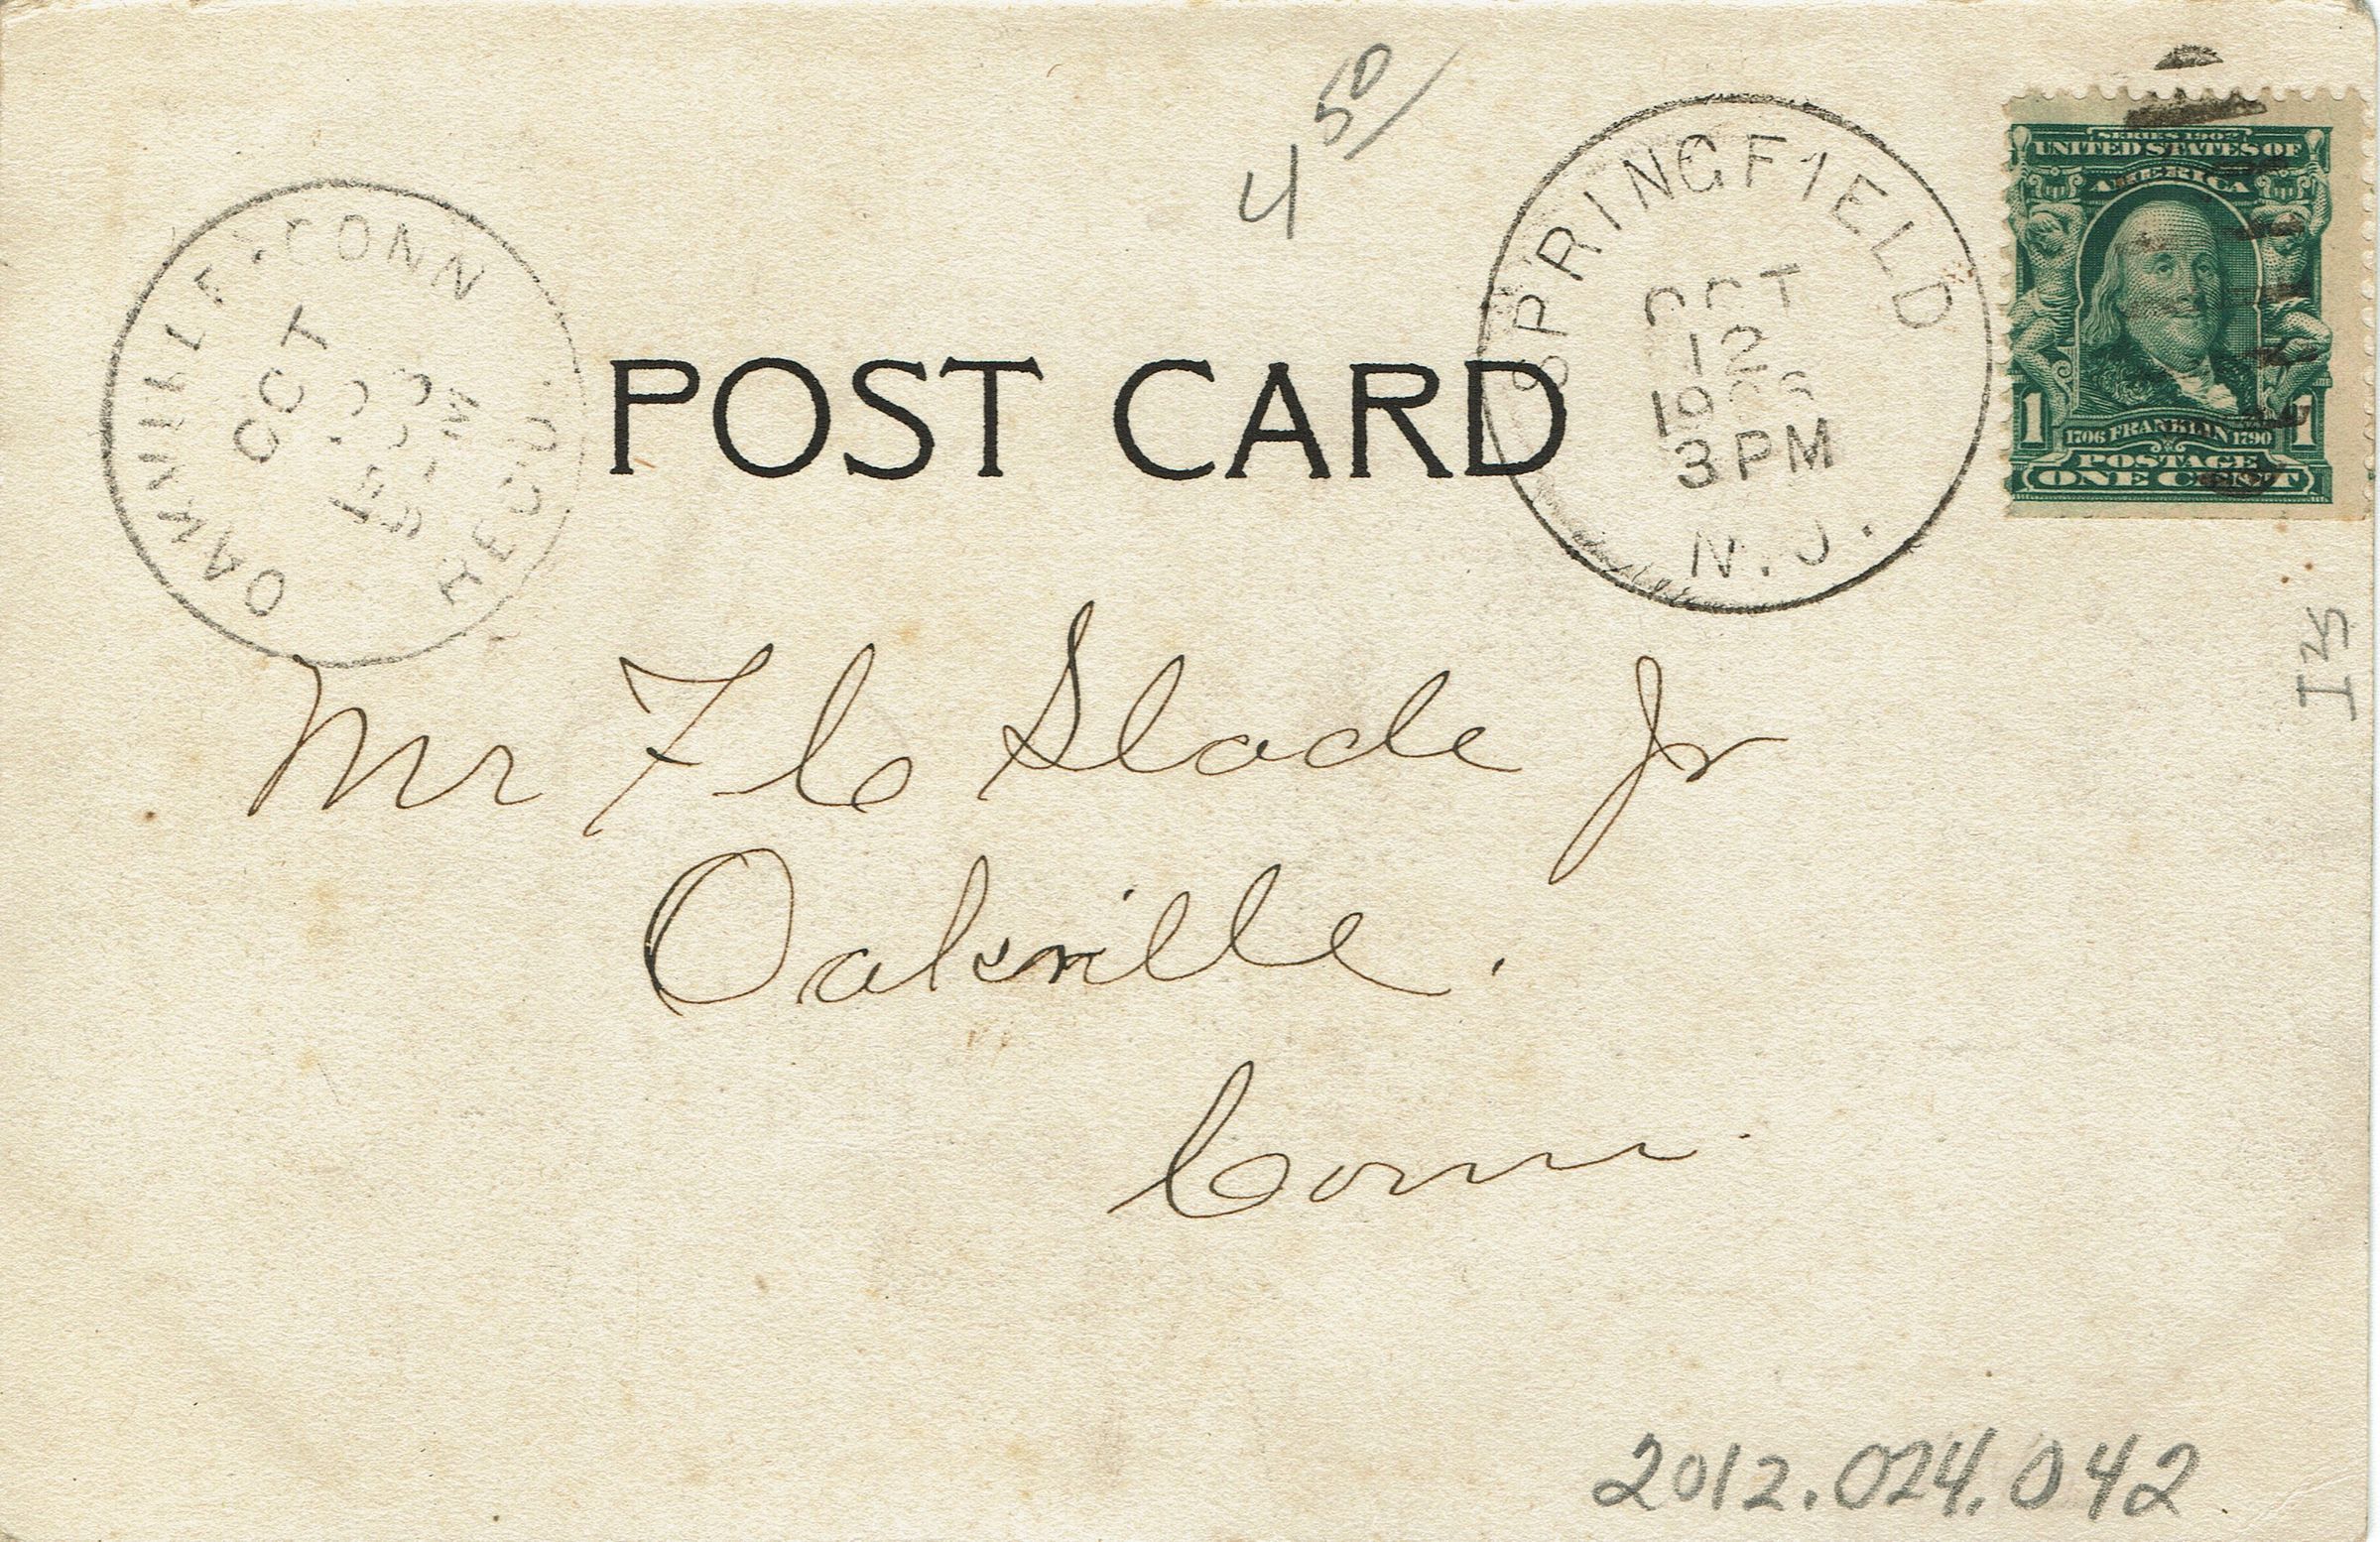 4 50/
SPRINGFIELD
OCT
12
3 PM
N.J.
SERIES 1902
UNITED STATES OF
AMERICA
1706 FRANKLIN 1790
1 1
POSTAGE
ONE CENT
OAKVILLE CONN
OCT
REC'D.
POST CARD
Mr F C Slade Jr
Oakville.
Conn.
2012.024.042